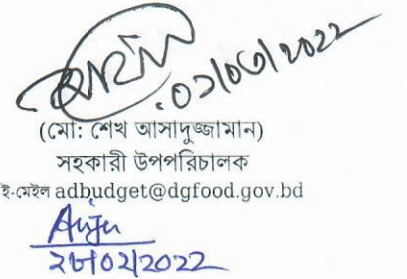 ০১/০৩/২০২২
(মো: শেখ আসাদুজ্জামান)
সহকারী উপপরিচালক
ই-মেইল adbudget@dgfood.gov.bd
Anju
২৮/০২/২০২২